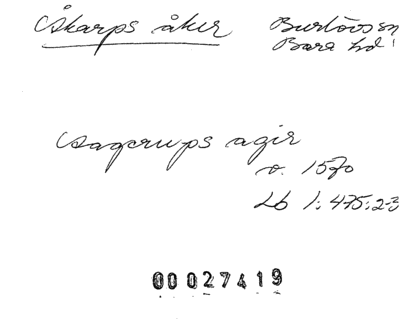 Åkarps åker Burlövs sn
Bara hd
Aagerups agir
o. 1570
Lb 1:475:2-3
00027419